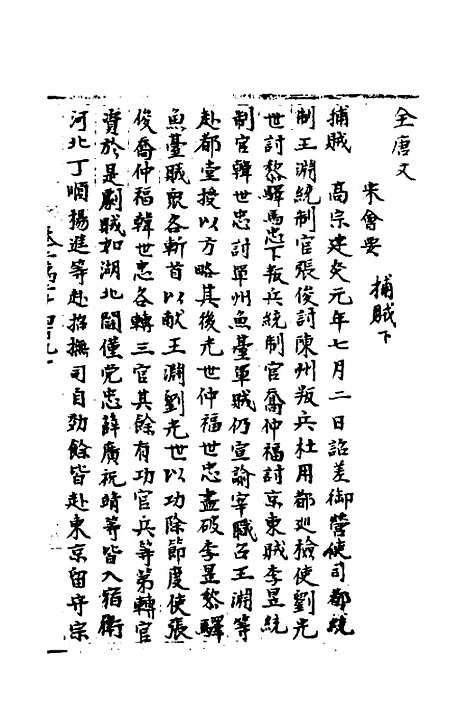 全唐文
宋會要　捕賊下
捕賊　高宗建炎元年七月二日詔差御營使司都統
制王淵統制官張俊討陳州叛兵杜用都廵檢使劉光
世討黎驛馬忠下叛兵統制官喬仲福討京東賊李昱統
制官韓世忠討單州魚臺軍賊仍宣諭宰職召王淵等
赴都堂授以方略其後光世仲福世忠盡破李昱黎驛
魚臺賊衆各斬首以獻王淵劉光世以功除節度使張
俊喬仲福韓世忠各轉三官其餘有功官兵等第轉官
賚於是劇賊如湖北閻僅党忠薛廣祝靖等皆入宿衛
河北丁順揚進等赴招撫司自効餘皆赴東京留守宗